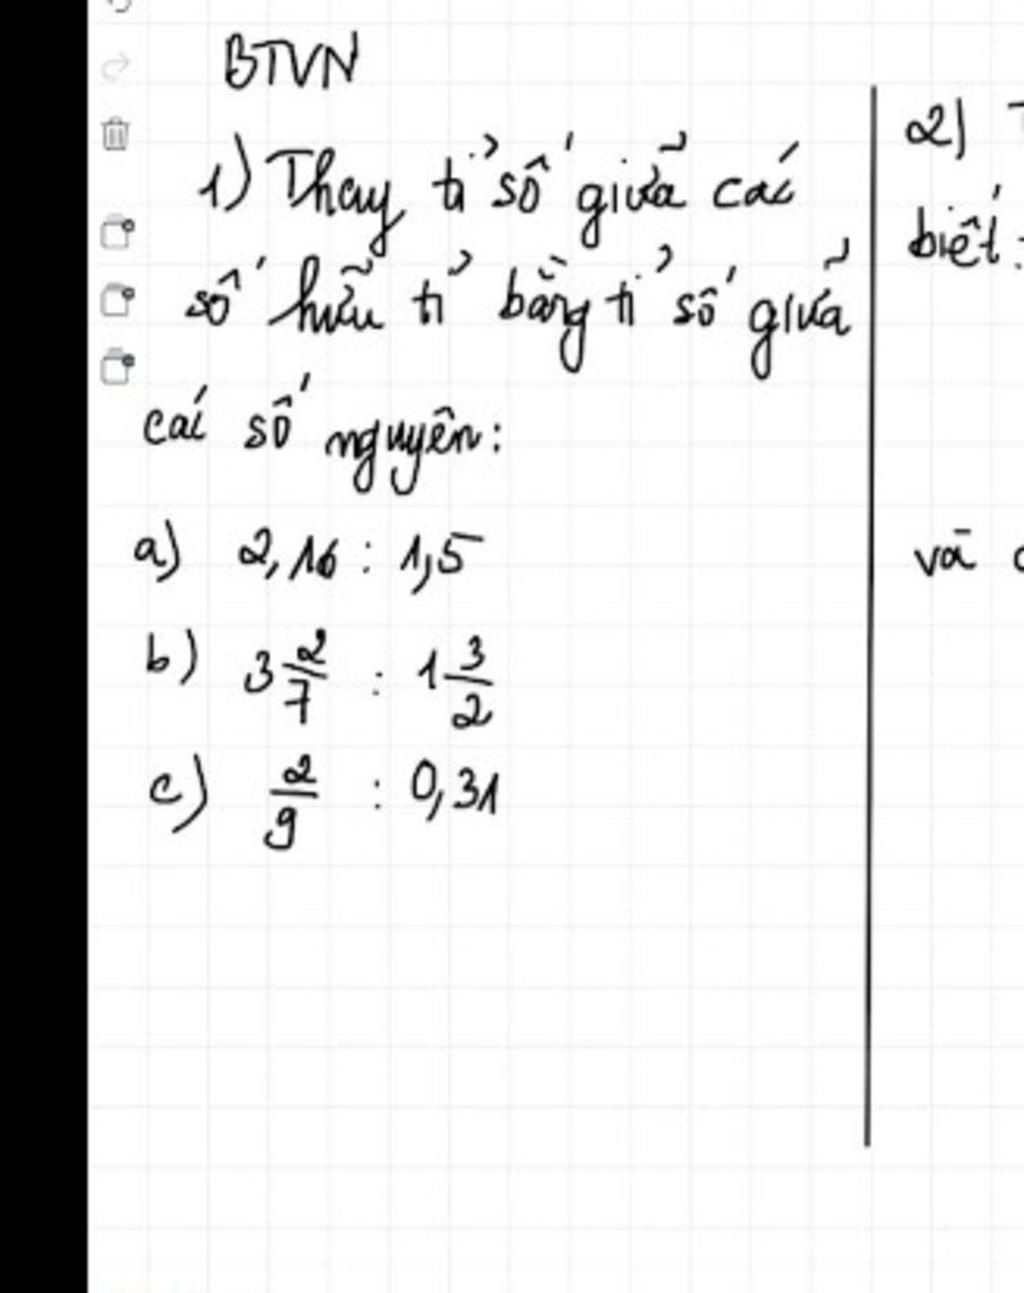 BTVN
1) Thay tỉ số giữa các
số hữu tỉ bằng tỉ số giữa
các số nguyên:
a) 2,16 : 1,5
b) 3 2/7 : 1 3/2
c) 2/9 : 0,31
2)
biết:
và